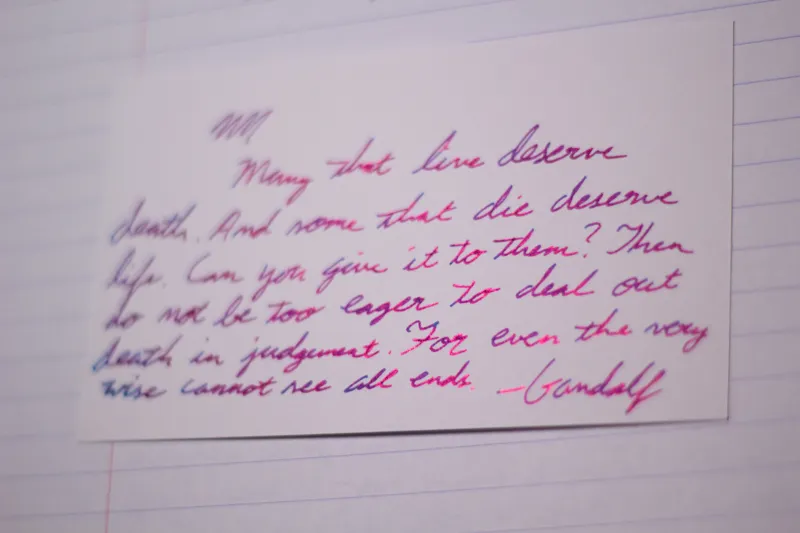 Many that live deserve
death. And some that die deserve
life. Can you give it to them? Then
do not be too eager to deal out
death in judgement. For even the very
wise cannot see all ends. —Gandalf